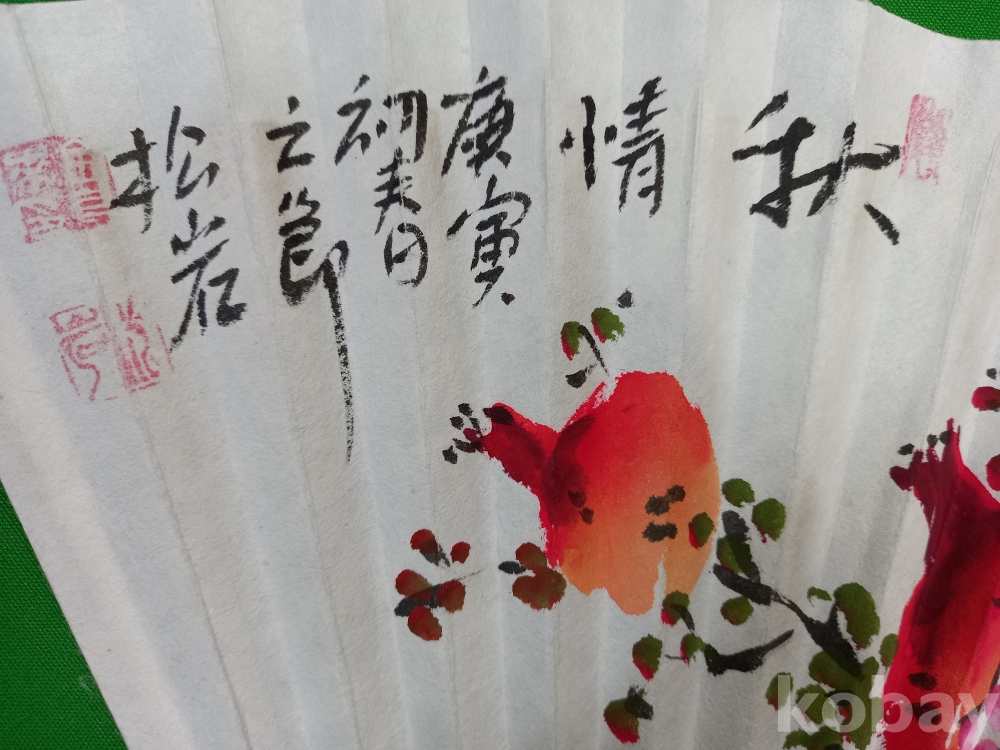 秋情
庚寅
初春
之節
松岩
kobay